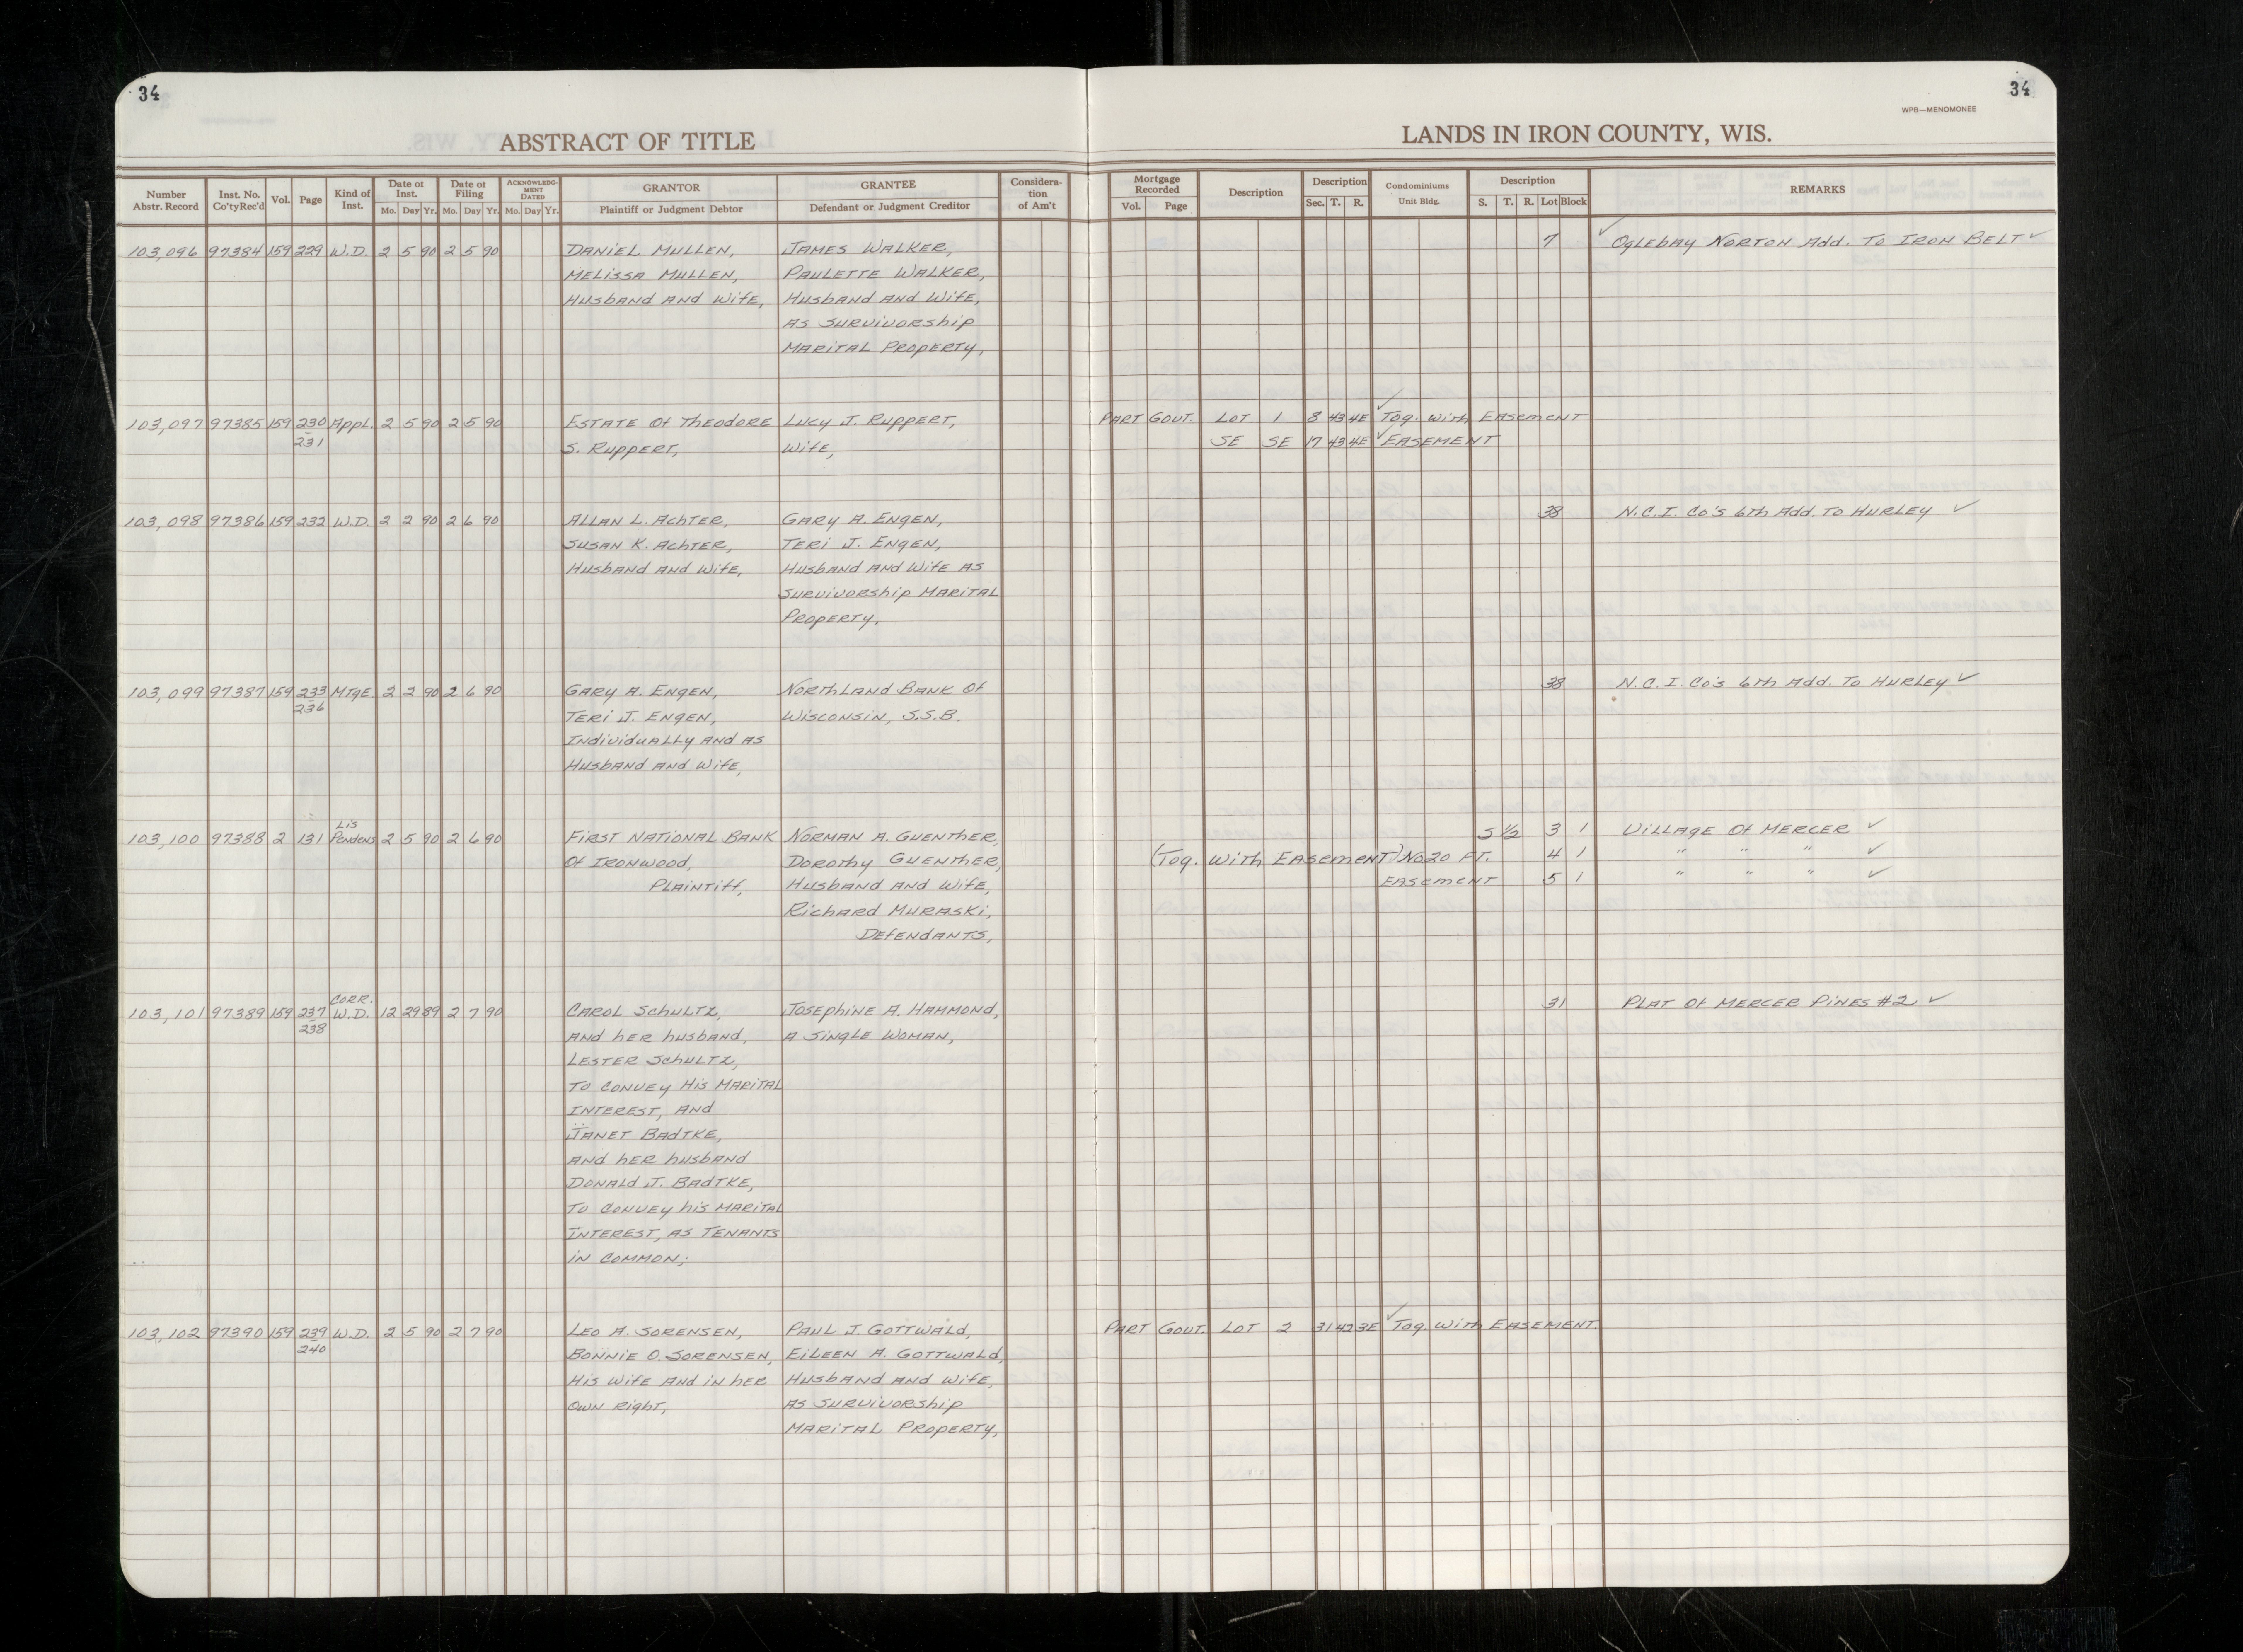 34
34
WPB—MENOMONEE
ABSTRACT OF TITLE
LANDS IN IRON COUNTY, WIS.
Number Abstr. Record | Inst. No. Co'ty Rec'd | Vol. | Page | Kind of Inst. | Date of Inst. Mo. Day Yr. | Date of Filing Mo. Day Yr. | ACKNOWLEDGMENT DATED Mo. Day Yr. | GRANTOR Plaintiff or Judgment Debtor | GRANTEE Defendant or Judgment Creditor | Consideration of Am't | Mortgage Recorded Vol. Page | Description | Description Sec. T. R. | Condominiums Unit Bldg. | Description S. T. R. Lot Block | REMARKS
103,096 97384 159 229 W.D. 2 5 90 2 5 90 DANIEL MULLEN, JAMES WALKER, 7 ✓ OGLEBAY NORTON Add. TO IRON BELT ✓
MELISSA MULLEN, PAULETTE WALKER,
HUSBAND AND WIFE, HUSBAND AND WIFE,
AS SURVIVORSHIP
MARITAL PROPERTY,
103,097 97385 159 230 Appl. 2 5 90 2 5 90 ESTATE Of THEODORE LUCY J. RUPPERT, PART GOVT. LOT 1 8 43 4E ✓ Tog. With EASEMENT
231 S. RUPPERT, WIFE, SE SE 17 43 4E ✓ EASEMENT
103,098 97386 159 232 W.D. 2 2 90 2 6 90 ALLAN L. ACHTER, GARY A. ENGEN, 38 N.C.I. Co's 6th Add. TO HURLEY ✓
SUSAN K. ACHTER, TERI J. ENGEN,
HUSBAND AND WIFE, HUSBAND AND WIFE AS
SURVIVORSHIP MARITAL
PROPERTY.
103,099 97387 159 233 MTGE. 2 2 90 2 6 90 GARY A. ENGEN, NORTHLAND BANK Of 38 N.C.I. Co's 6th Add. TO HURLEY ✓
236 TERI J. ENGEN, WISCONSIN, S.S.B.
INDIVIDUALLY AND AS
HUSBAND AND WIFE,
Lis
103,100 97388 2 131 Pendens 2 5 90 2 6 90 FIRST NATIONAL BANK NORMAN A. GUENTHER, S 1/2 3 1 VILLAGE Of MERCER ✓
Of IRONWOOD, DOROTHY GUENTHER, (Tog. With EASEMENT) No 20 FT. 4 1 " " " ✓
PLAINTIFF, HUSBAND AND WIFE, EASEMENT 5 1 " " " ✓
RICHARD MURASKI,
DEFENDANTS,
CORR.
103,101 97389 159 237 W.D. 12 29 89 2 7 90 CAROL SCHULTZ, JOSEPHINE A. HAMMOND, 31 PLAT Of MERCER PINES #2 ✓
238 AND HER HUSBAND, A SINGLE WOMAN,
LESTER SCHULTZ,
TO CONVEY HIS MARITAL
INTEREST, AND
JANET BADTKE,
AND HER HUSBAND
DONALD J. BADTKE,
TO CONVEY HIS MARITAL
INTEREST, AS TENANTS
IN COMMON;
103,102 97390 159 239 W.D. 2 5 90 2 7 90 LEO A. SORENSEN, PAUL J. GOTTWALD, PART GOVT. LOT 2 31 42 3E ✓ Tog. With EASEMENT
240 BONNIE O. SORENSEN, EILEEN A. GOTTWALD,
HIS WIFE AND IN HER HUSBAND AND WIFE,
OWN RIGHT, AS SURVIVORSHIP
MARITAL PROPERTY,